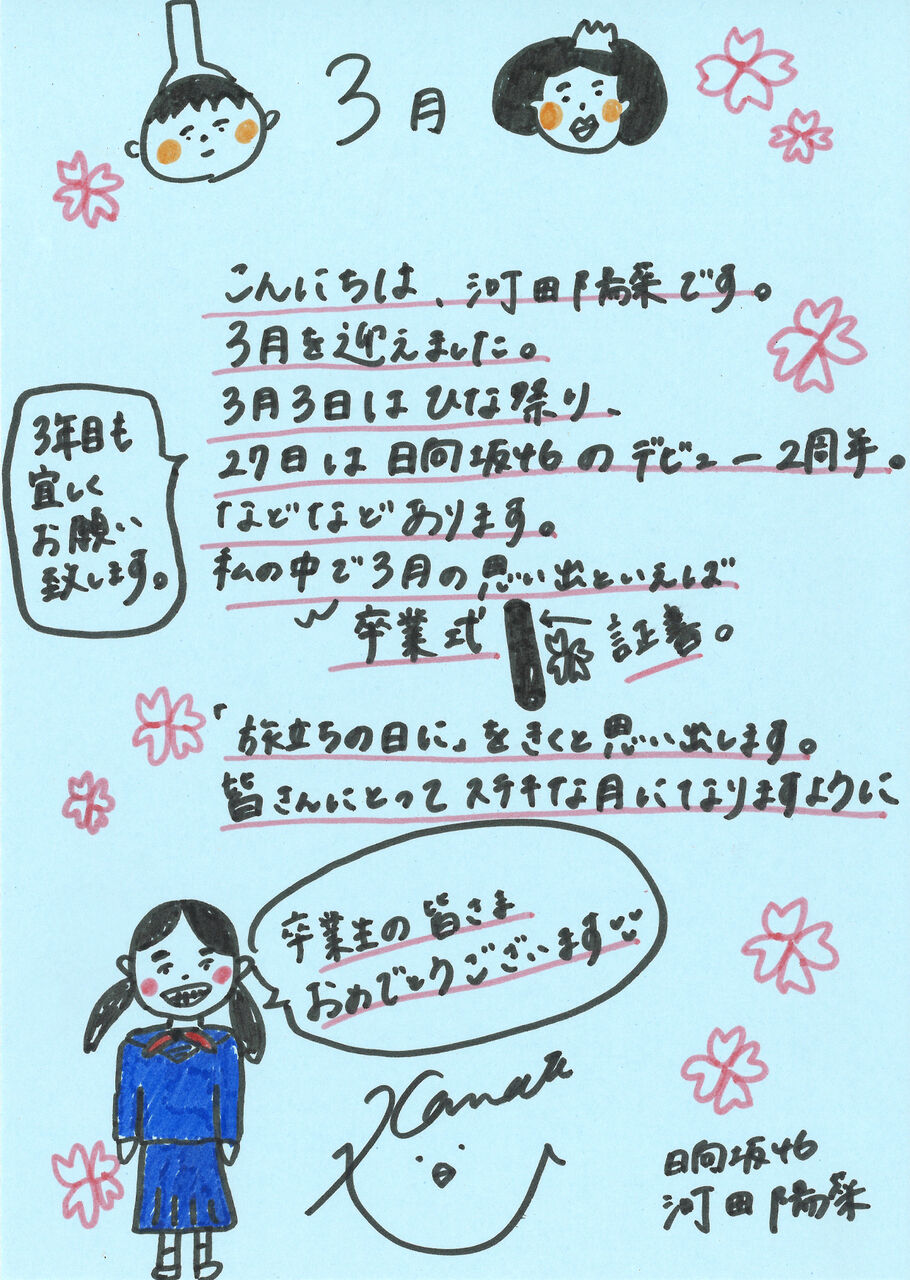 3月
こんにちは、河田陽菜です。
3月を迎えました。
3月3日はひな祭り、
27日は日向坂46のデビュー2周年。
などなどあります。
私の中で3月の思い出といえば
卒業式
証書。
「旅立ちの日に」をきくと思い出します。
皆さんにとってステキな月になりますように
3年目も
宜しく
お願い
致します。
卒業生の皆さま
おめでとうございます
Kanata
日向坂46
河田陽菜